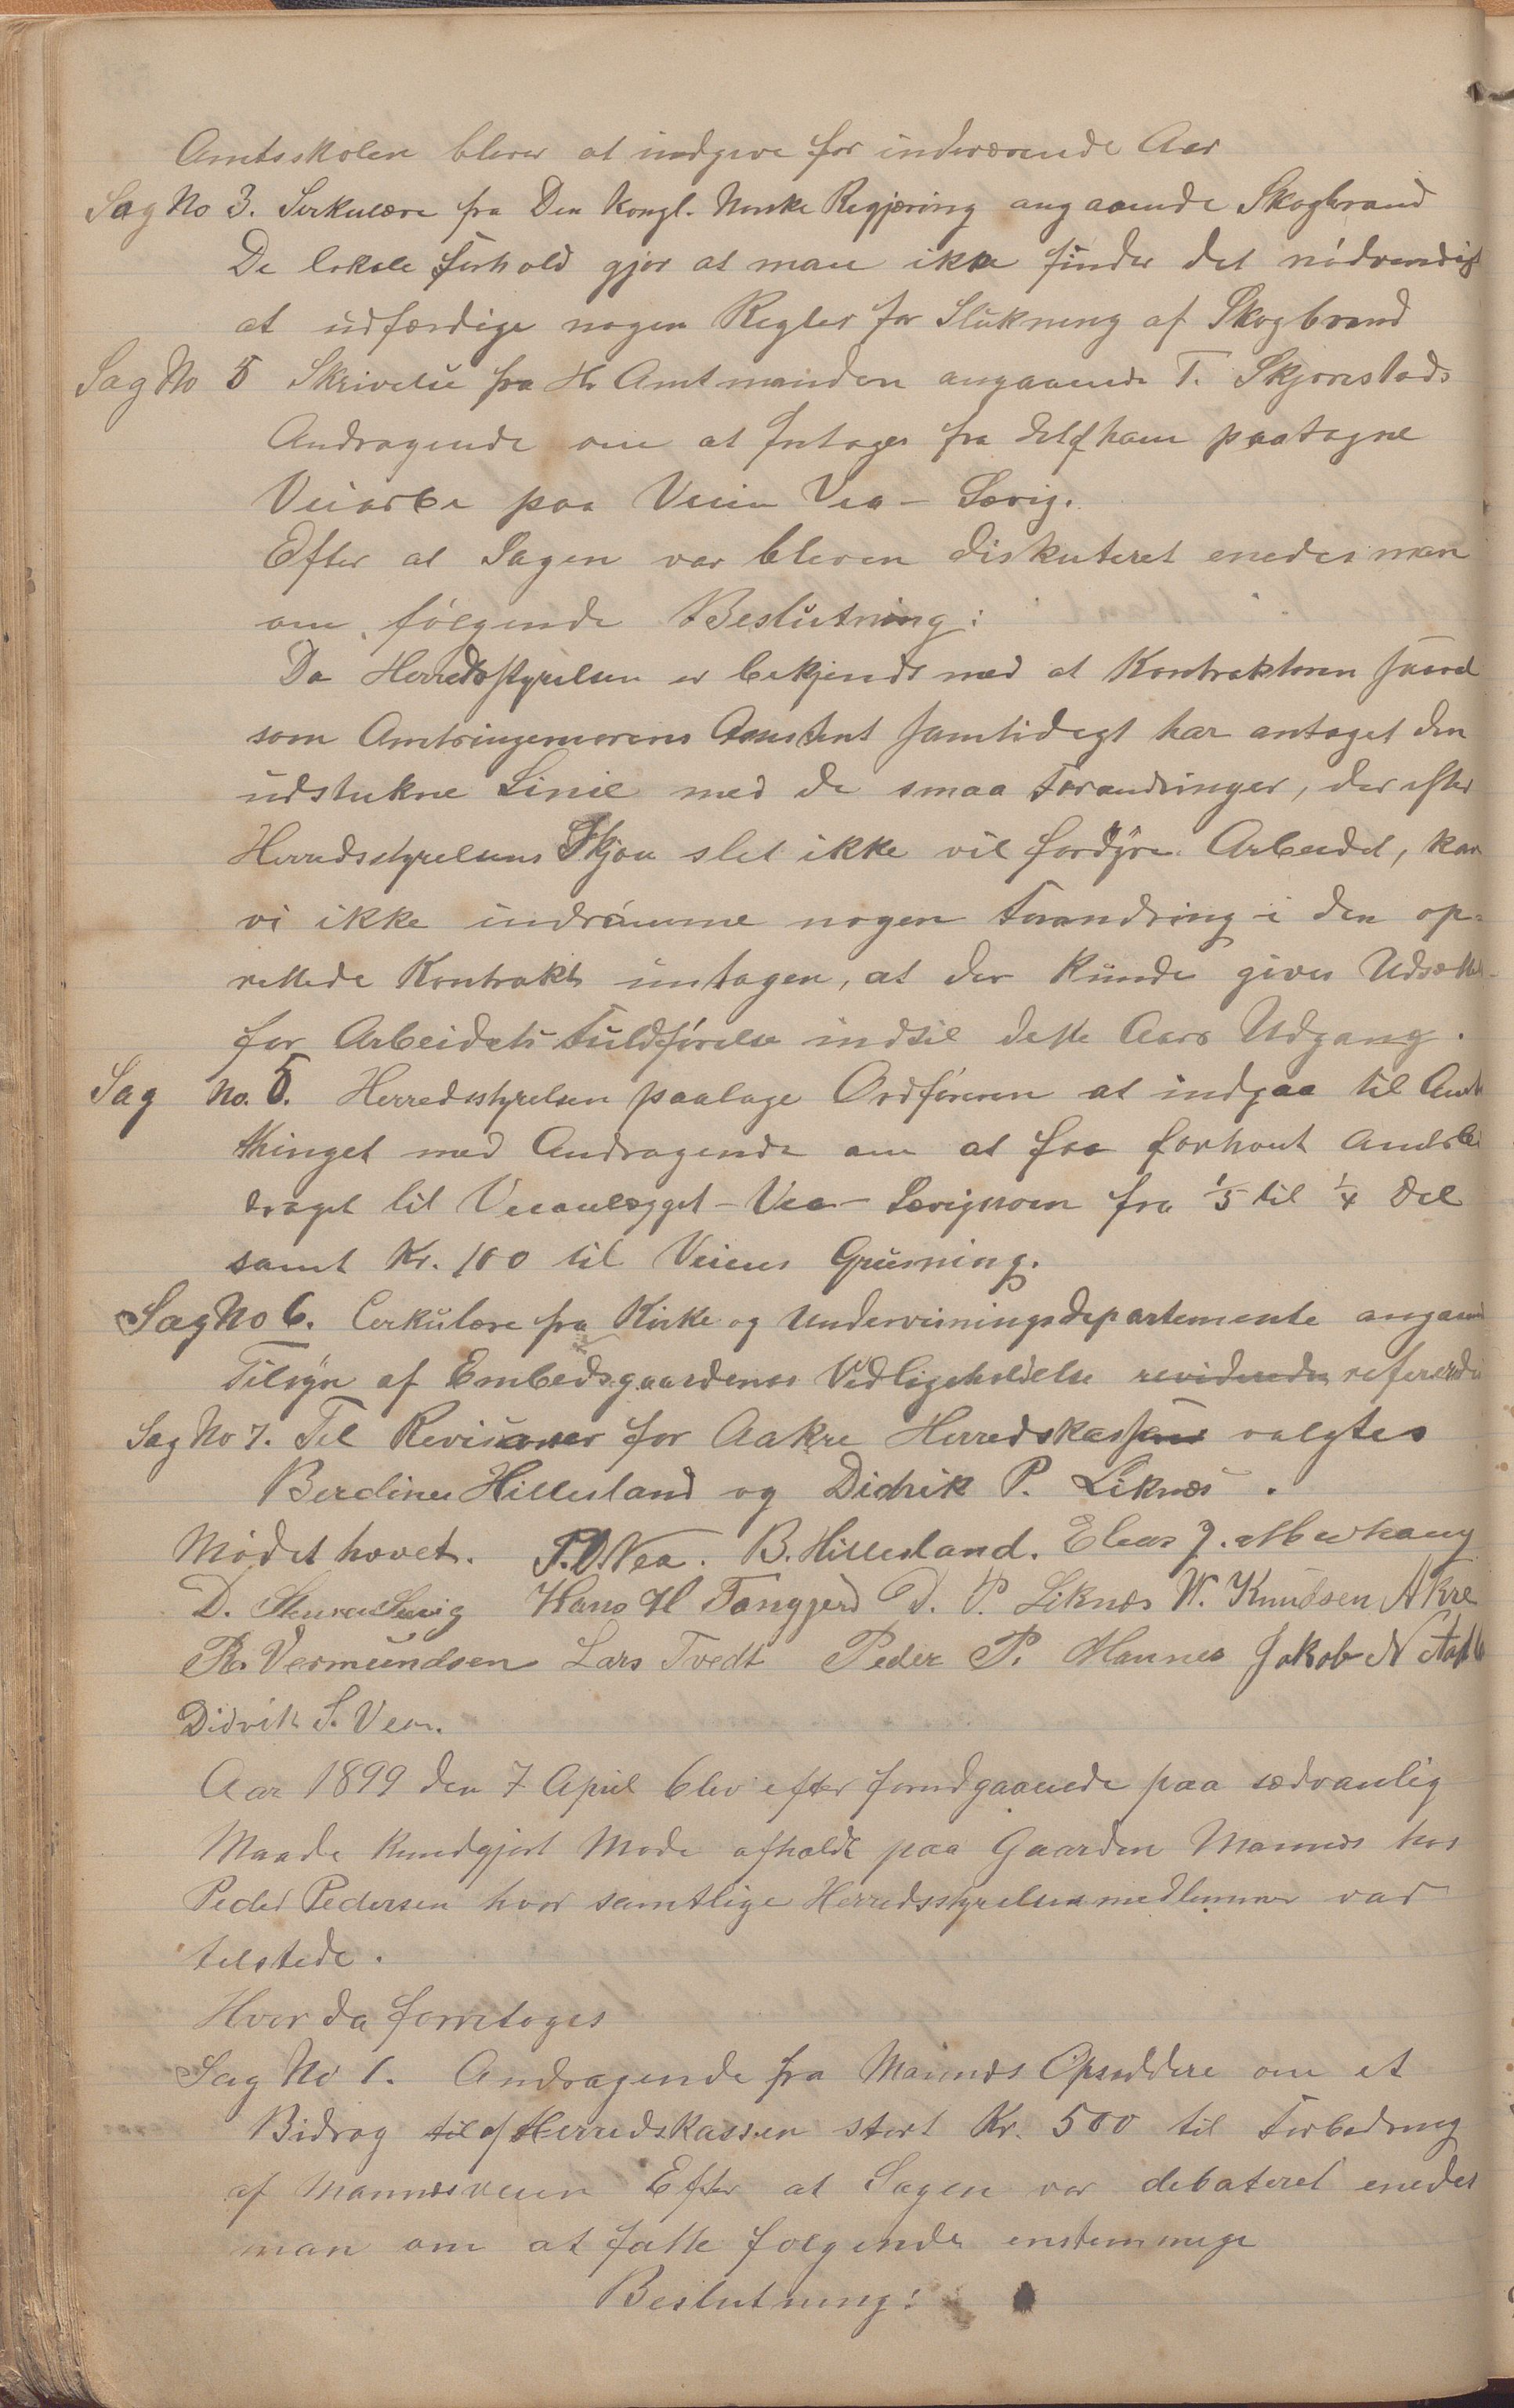 Amtsskolen bliver at indgive for indeværende Aar
Sag No 3. Serkulære fra Den Kongl. Norske Regjæring angaaende Skogbrand
De lokale Forhold gjør at man ikke finder det nødvendigt
at udfærdige nogen Regler for Slukning af Skogbrand
Sag No 5 Skrivelse fra Hr Amtmanden angaaende T. Skjørestads
Andragende om at fritages fra det af ham paatagne
Veiarbe paa Veien Vea - Sævig.
Efter at Sagen var bleven diskuteret enedes man
om følgende Beslutning:
Da Herredsstyrelsen er bekjendt med at Kontraktøren saavel
som Amtsingeniørens Assistent samtidigt har antaget den
udstukne Linie med de smaa Forandringer, der efter
Herredsstyrelsens Skjøn slet ikke vil fordyre Arbeidet, kan
vi ikke indrømme nogen Forandring i den op-
rettede Kontrakt untagen, at der kunde gives Udsættel-
for Arbeidets Fuldførelse indtil dette Aars Udgang.
Sag No. 5. Herredsstyrelsen paalage Ordføreren at indgaa til Amts
thinget med Andragende om at faa forhøiet Amtsbi
draget til Veianlægget - Vea - Sævigveien fra 1/5 til 1/4 Del
samt Kr. 100 til Veiens Grusning.
Sag No 6. Cerkulære fra Kirke og Undervisningsdepartemente angaaend
Tilsyn af Embedsgaardenes Vedligeholdelse reviderede refererede
Sag No 7. Til Revisorer for Aakre Herredskasse valgtes
Berdines Hillesland og Didrik P. Liknes.
Mødet hævet. T. D. Vea. B. Hillesland. Elias J.
D. Sævig Hans H Tangjerd D. P. Liknes W. Knudsen Akre
R. Vermundsen Lars Tvedt Peder P. Mannes Jakob N
Didrik S. Vea.
Aar 1899 den 7 April blev efter forudgaaende paa sædvanlig
Maade kundgjort Møde afholdt paa Gaarden Mannes hos
Peder Pedersen hvor samtlige Herredsstyrelsesmedlemmer var
tilstede.
Hvor da foretoges
Sag No 1. Andragende fra Mannes Opsiddere om et
Bidrag til af Herredskassen stort Kr. 500 til Forbedring
af Mannesveien Efter at Sagen var debateret enedes
man om at fatte følgende enstemmige
Beslutning: